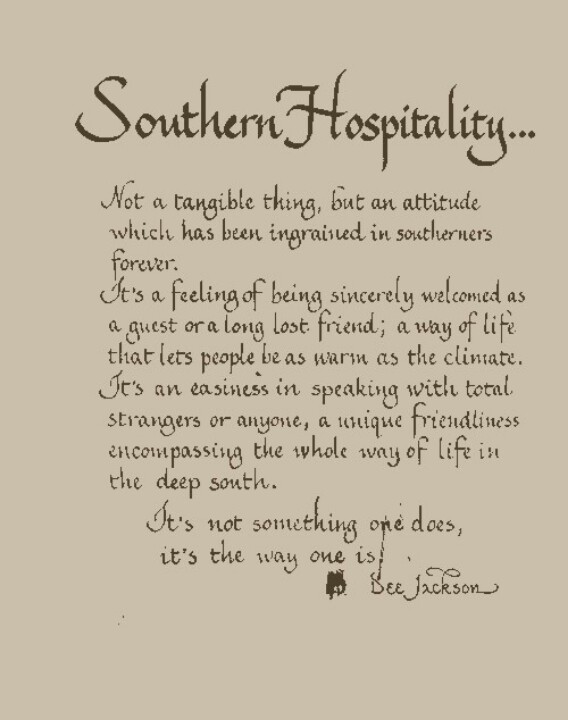 Southern Hospitality...
Not a tangible thing, but an attitude
which has been ingrained in southerners
forever.
It's a feeling of being sincerely welcomed as
a guest or a long lost friend; a way of life
that lets people be as warm as the climate.
It's an easiness in speaking with total
strangers or anyone, a unique friendliness
encompassing the whole way of life in
the deep south.
It's not something one does,
it's the way one is!
Dee Jackson